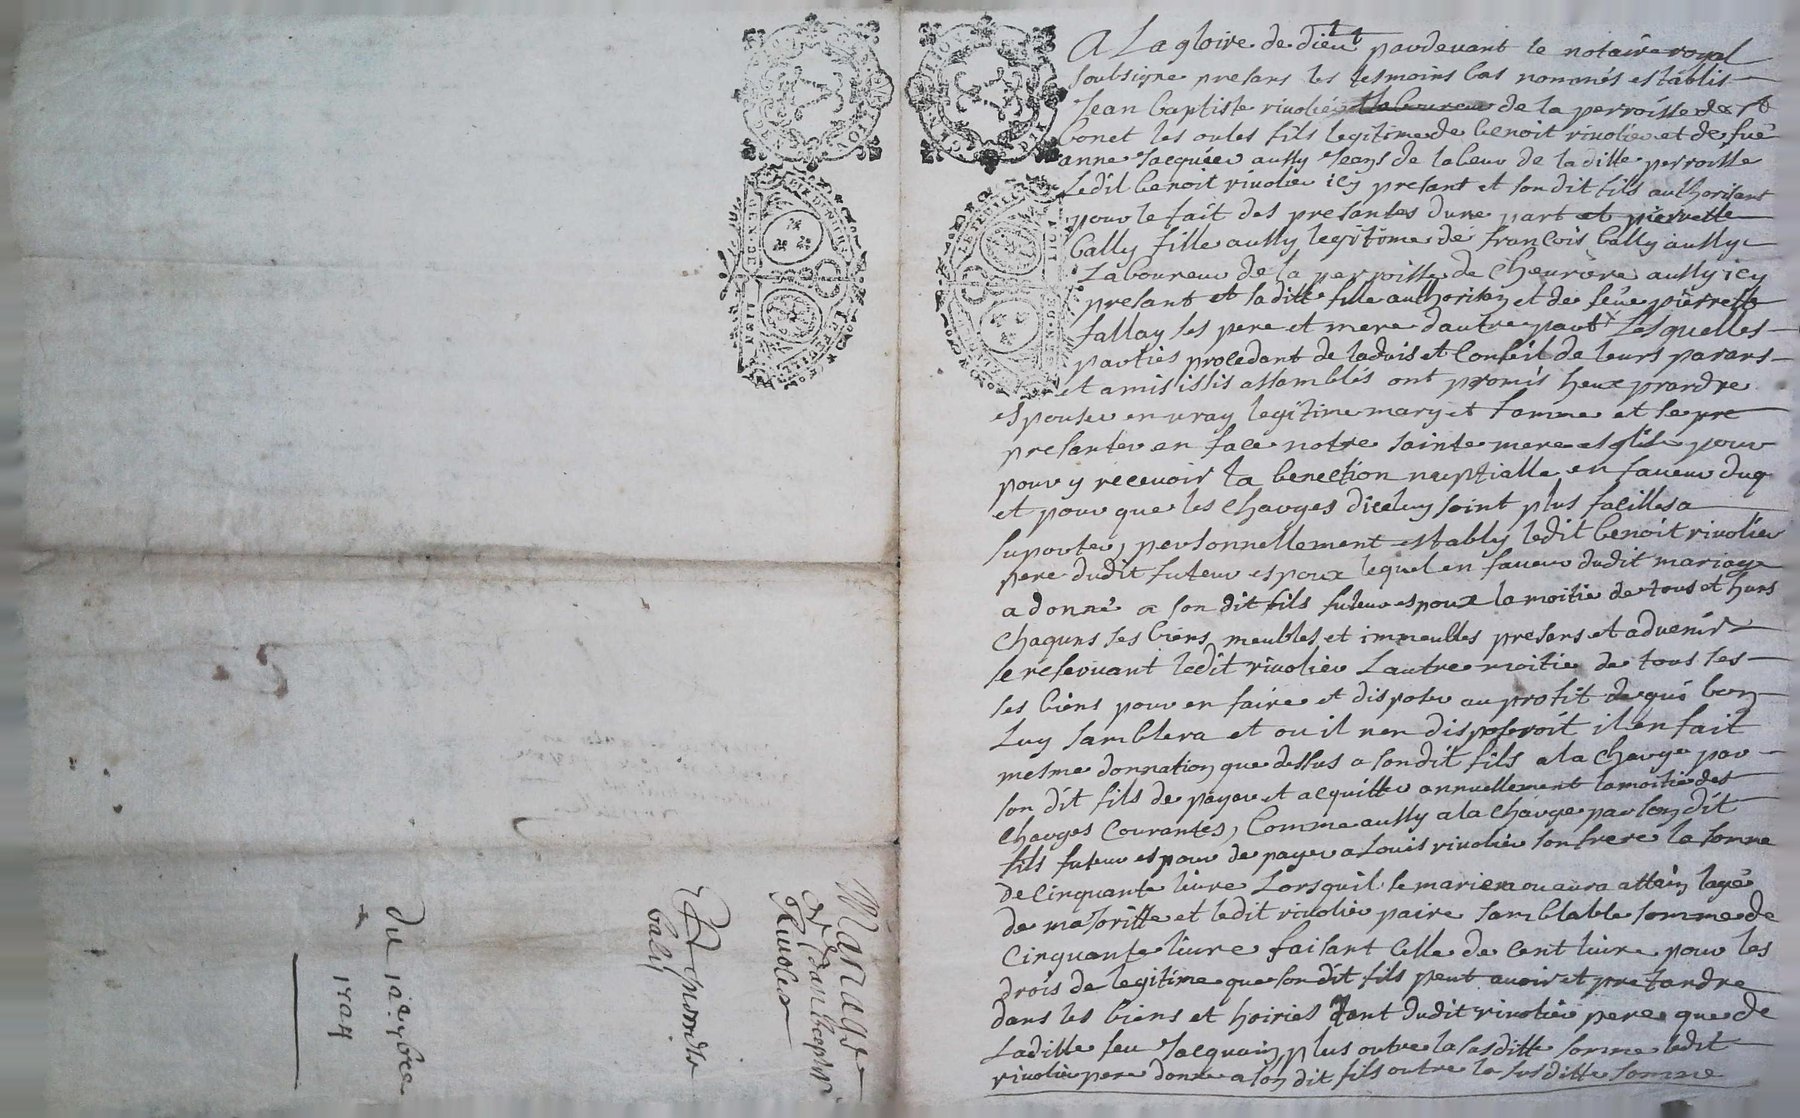 A La gloire de dieu pardevant le notaire royal
soubsigne presans les tesmoins bas nommés establis
Jean baptiste riuolier de la perroisse de st
bonet les oules fils legitime de benoit riuolier et de fue
anne Jacquier aussy Jeans de labeur de la ditte perroisse
Ledit benoit riuolier icy presant et son dit fils authorisant
pour le fait des presantes dune part et pierrette
bally fille aussy legitime de françois bally aussy
Laboureur de la perroisse de cheuriere aussy icy
presant et saditte fille authorisan et de feue pierrette
fallay ses pere et mere dautre part Lesquelles
parties procedant de laduis et Conseil de leurs parans
et amis issis assamblés ont promis heux prandre
espouser en uray legitime mary et famme et se pre
presanter en face notre sainte mere esglise pour
pour y receuoir la benection nuptialle en faueur duq
et pour que les charges diceluy soint plus facilles a
suporter, personnellement estably ledit benoit riuolier
pere dudit futeur espoux lequel en faueur dudit mariage
a donné a son dit fils futeur espoux la moitie de tous et huns
chaquns ses biens meubles et immeubles presans et aduenir
se reseruant ledit riuolier Lautre moitie de tous ses
ses biens pour en faire et disposer au profit de qui bon
Luy samblera et ou il nen disposeroit il en fait
mesme donnation que dessus a son dit fils a la charge par
son dit fils de payer et acquitter annuellement la moitie des
charges Courantes, Comme aussy a la charge par son dit
fils futeur espoux de payer a Louis riuolier son frere la somme
de cinquante liure Lorsquil se mariera ou aura attein lage
de maJoritte et ledit riuolier paire samblable somme de
cinquante liure faisant celle de cent liure pour les
drois de legitime que son dit fils peut auoir et pretandre
dans les biens et hoiries tant dudit riuolier pere que de
Laditte feu Jacquain, plus outre la susditte somme ledit
riuolier pere donne a son dit fils outre la susditte somme
Mariage
de Jean baptiste
Riuolier
bally
du 12e xbre
1704